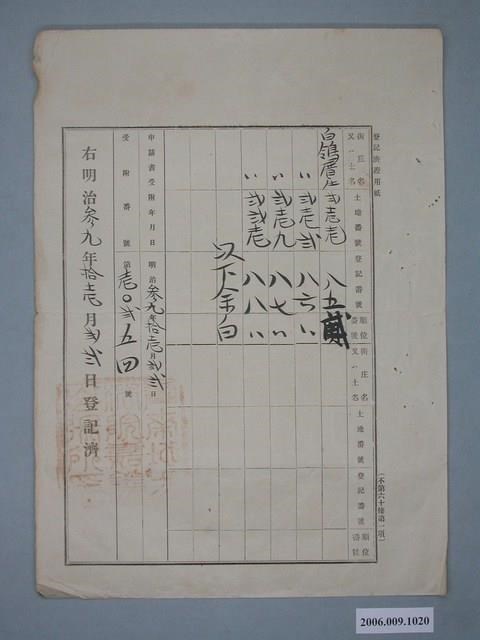 登記済證用紙
街庄名又ハ土名 土地番號 登記番號 順位番號 街庄名又ハ土名 土地番號 登記番號 順位番號
(不第六十條第一項)
白鴿厝庄 弐壱壱 八五 貳
〃 弐壱弐 八六 〃
〃 弐壱九 八七 〃
〃 弐弐壱 八八 〃
以下余白
申請書受附年月日 明治参九年拾壱月弐弐日
受附番號 第壱〇弐五四號
右明治参九年拾壱月弐弐日登記済
2006.009.1020